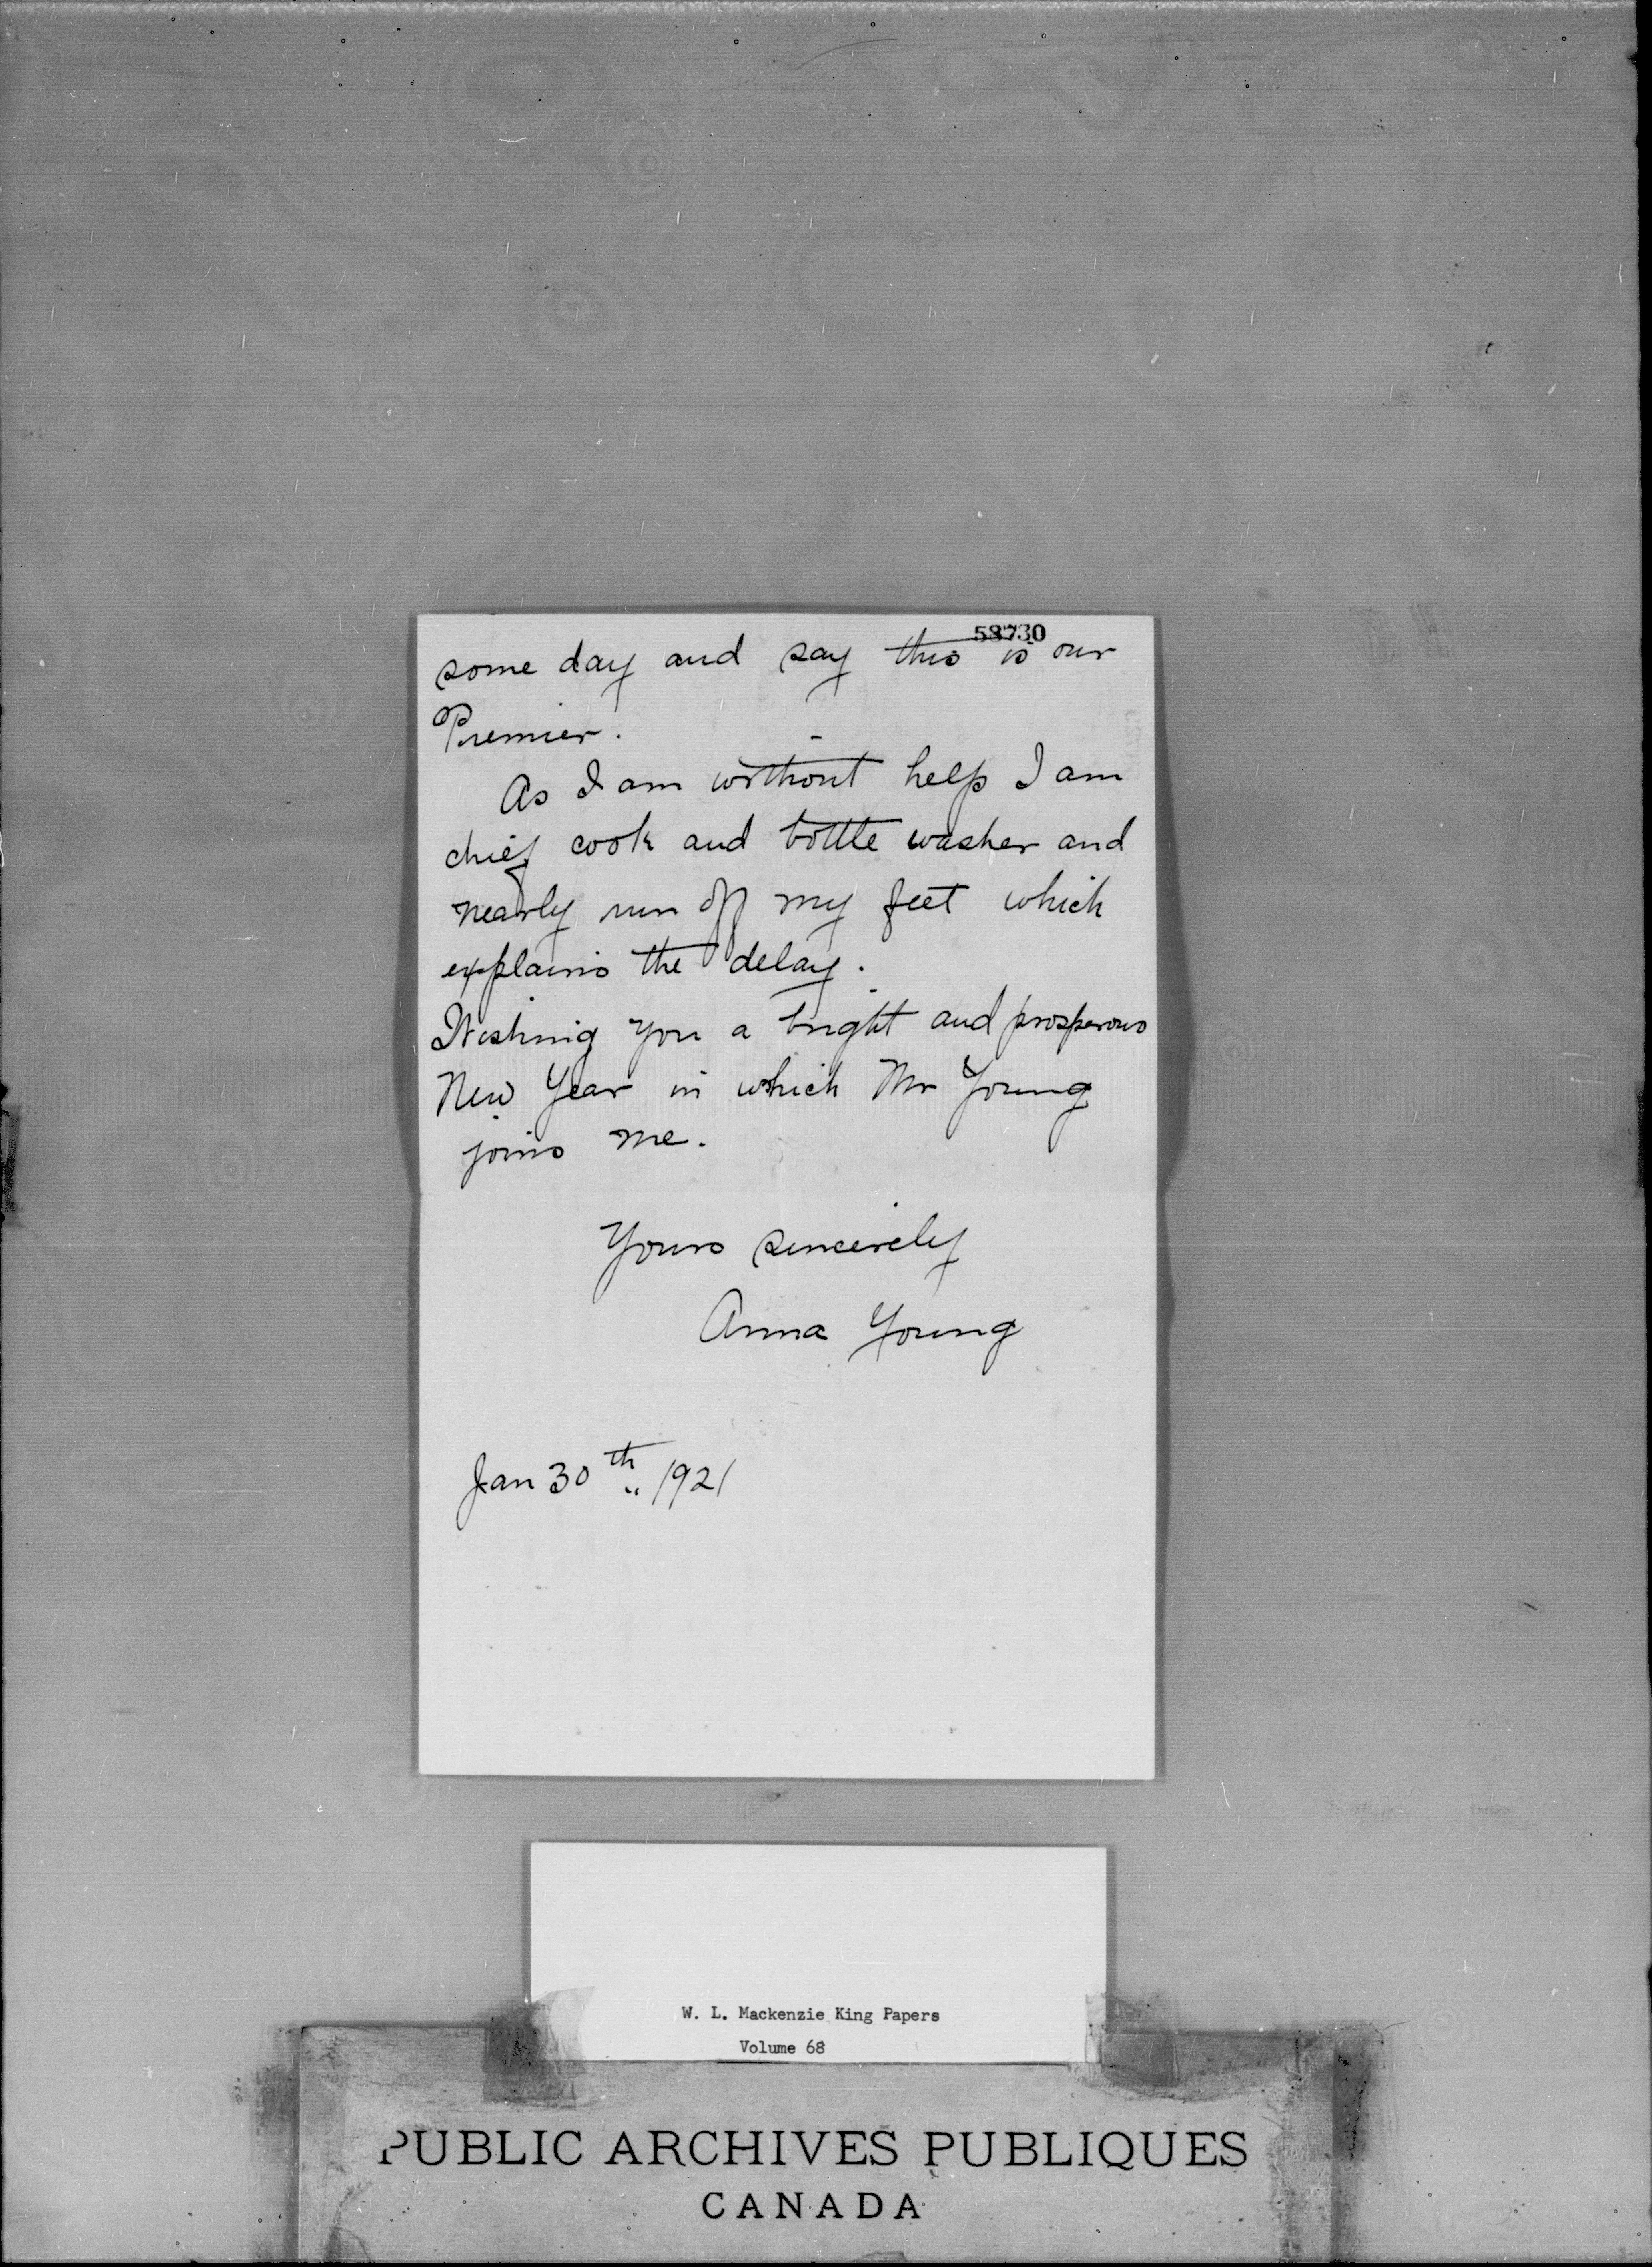 58730
some day and say this is our
Premier.
As I am without help I am
chief cook and bottle washer and
nearly run off my feet which
explains the delay.
Wishing you a bright and prosperous
New Year in which Mr Young
joins me.
Yours sincerely
Anna Young
Jan 30th 1921
W. L. Mackenzie King Papers
Volume 68
PUBLIC ARCHIVES PUBLIQUES
CANADA